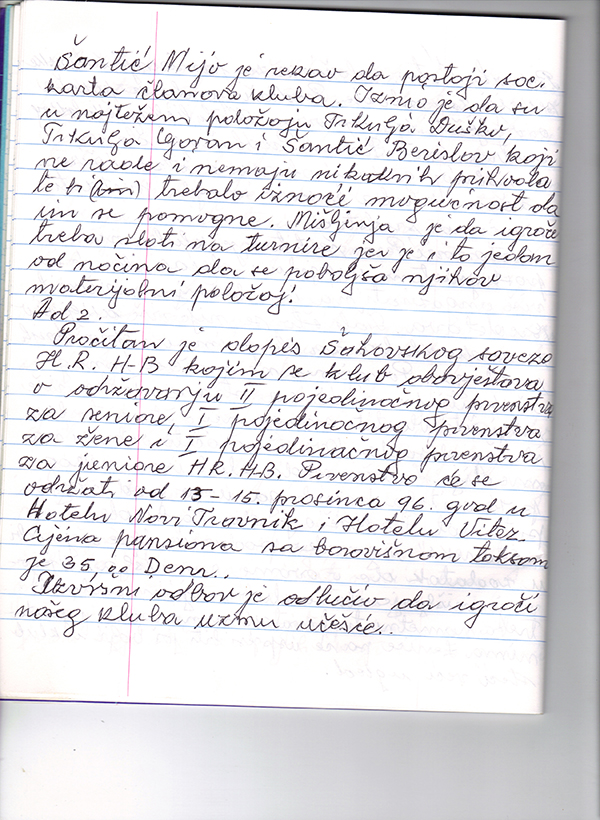 Šantić Mijo je rekao da postoji soc.
karta članova kluba. Iznio je da su
u najtežem položaju Trkulja Duško,
Trkulja Goran i Šantić Berislav koji
ne rade i nemaju nikakvih prihoda
te bi trebalo iznaći mogućnost da
im se pomogne. Mišljnja je da igrače
treba slati na turnire jer je i to jedan
od načina da se poboljša njihov
materijalni položaj.
Ad 2.
Pročitan je dopis Šahovskog saveza
H.R. H-B kojim se klub obavještava
o održavanju II pojedinačnog prvenstva
za seniore, I pojedinačnog prvenstva
za žene i I pojedinačnog prvenstva
za juniore HR. HB. Prvenstvo će se
održati od 13-15. prosinca 96. god u
Hotelu Novi Travnik i Hotelu Vitez.
Cijena pansiona sa boravišnom taksom
je 35,00 Dem..
Izvršni odbor je odlučio da igrači
našeg kluba uzmu učešće..